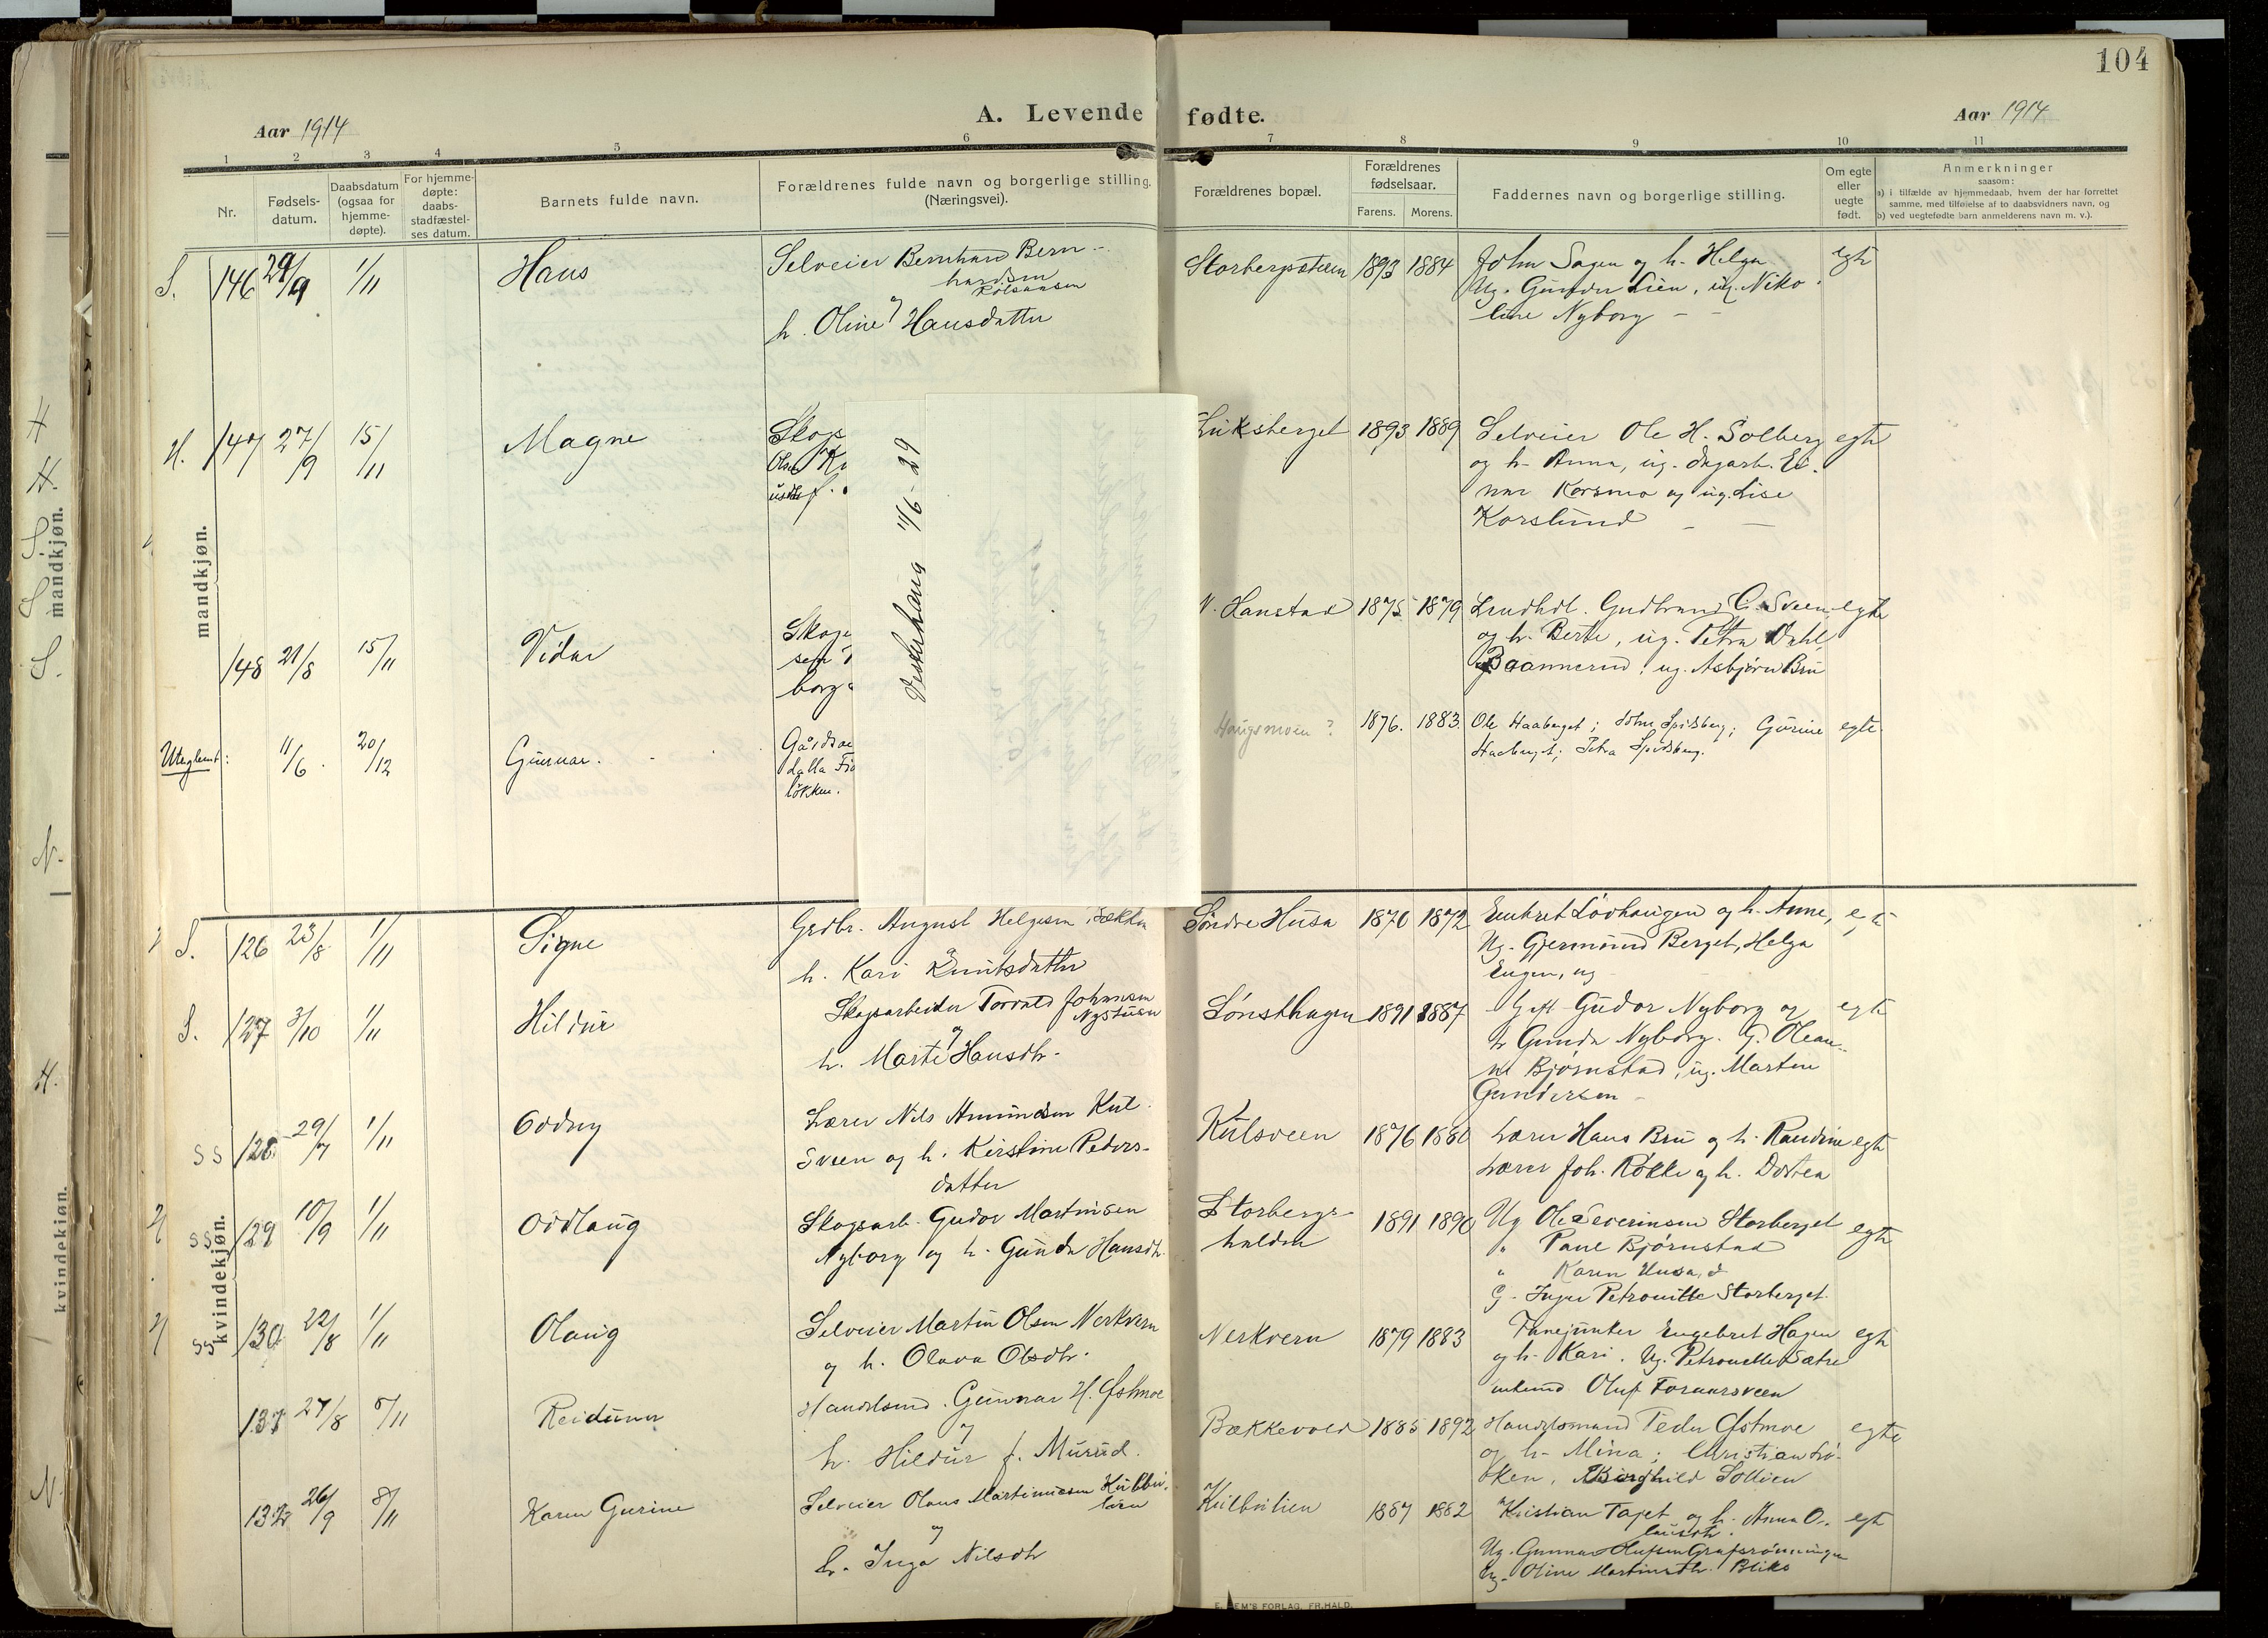 104
Aar 1914
A. Levende fødte.
Aar 1914
1 2 3 4 5 6 7 8 9 10 11
Nr.
Fødsels-
datum.
Daabsdatum
(ogsaa for
hjemme-
døpte).
For hjemme-
døpte:
daabs-
stadfæstel-
ses datum.
Barnets fulde navn.
Forældrenes fulde navn og borgerlige stilling.
(Næringsvei).
Forældrenes bopæl.
Forældrenes
fødselsaar.
Farens. Morens.
Faddernes navn og borgerlige stilling.
Om egte
eller
uegte
født.
Anmerkninger
saasom:
a) i tilfælde av hjemmedaab, hvem der har forrettet
samme, med tilføielse af to daabsvidners navn, og
b) ved uegtefødte barn anmelderens navn m. v.).
mandkjøn.
S. 146 29/9 1/11 Hans
Selveier Bernhard Bern-
hardsen
og
h. Oline Hansdatter
Storbergsteien 1893 1884
John Sagen og h. Helga
Ug. Gunder Lien, ug. Niko
line Nyborg - -
egte
H. 147 27/9 15/11 Magne
Skogs
Olsen
Luksberget 1893 1889
Selveier Ole H. Solberg
og h. Anna, ug. dagarb. Ei-
nar Korsmo og ug. Lise
Korslund - -
egte
148 21/8 15/11 Vidar
Skogs
sen
borg
N. Hanstad 1875 1879
Landhdl. Gudbrand C. Sveen
og h. Berte, ug. Petra Dahl
Baannerud, ug. Asbjørn Bru
egte
Uteglemt: 11/6. 20/12 Gunnar.
Gårdsar
løkken.
Haugsmoen? 1876. 1883.
Ole Haaberget; John Spidsberg; Gurine
Haaberget; Petra Spidsberg.
egte.
Vesterhaug 11/6-29
kvindekjøn.
S. 126 23/8 1/11 Signe
Grdbr. August Helgesen
og
h. Kari Knutsdatter
Søndre Husa 1870 1872
Embret Løvhaugen og h. Anne,
Ug. Gjermund Berget, Helga
Engen, ug
egte
S. 127 3/10 1/11 Hildur
Skogsarbeider Torvald Johansen
Nystuen
og
h. Marte Hansdtr.
Lønsthagen 1891 1887
Gift Gudor Nyborg og
h Gunda Nyborg. G. Olean-
Bjørnstad, ug. Martin
Gundersen -
egte
SS 128. 29/7 1/11 Oddny
Lærer Nils Amundsen Kul-
sveen og h. Kirstine Peders-
datter
Kulsveen 1876 1880
Lærer Hans Bru og h. Randine
Lærer Joh. Løkke og h. Dortea
egte
SS 129 10/9 1/11 Oddlaug
Skogsarb. Gudor Martinsen
Nyborg og h. Gunda Hansdtr.
Storbergs-
halden 1891 1890
Ug Ole Severinsen Storberget
" Paul Bjørnstad
" Karen Husa,
G. Inger Petronille Storberget.
egte
SS 130 22/8 1/11 Olaug
Selveier Martin Olsen Nerkvern
og h. Olava Olsdtr.
Nerkvern 1879 1883
Fanejunker Engebret Hagen
og h. Kari. Ug. Petronelle Sætre
Oluf Foraarsveen
egte
131 27/8 8/11 Reidunn
Handelsmd. Gunnar H. Østmoe
og
h. Hildur f. Murud.
Bækkevold 1885 1892
Handelsmand Peder Østmoe
og h. Mina; Christian Lø-
ken, Borghild Sollien
egte
132 26/9 8/11 Karen Gurine
Selveier Olaus Martiniusen Kubbu-
lien
og
h. Inga Nilsdtr
Kulbulien 1887 1882
Kristian Tajet og h. Anna O-
lausdtr.
Ug. Gunnar Olufsen Grafsrønningen
Ug. Oline Martinsdtr. Bliko
egte
E. SEM'S FORLAG, FR.HALD.